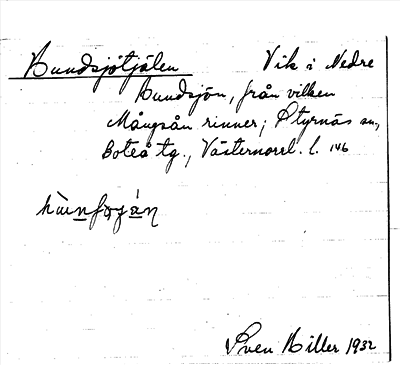 Hundsjötjälen Vik i Nedre
Hundsjön, från vilken
Mångsån rinner; Styrnäs sn,
Boteå tg., Västernorrl. l. 146
Sven Hiller 1932